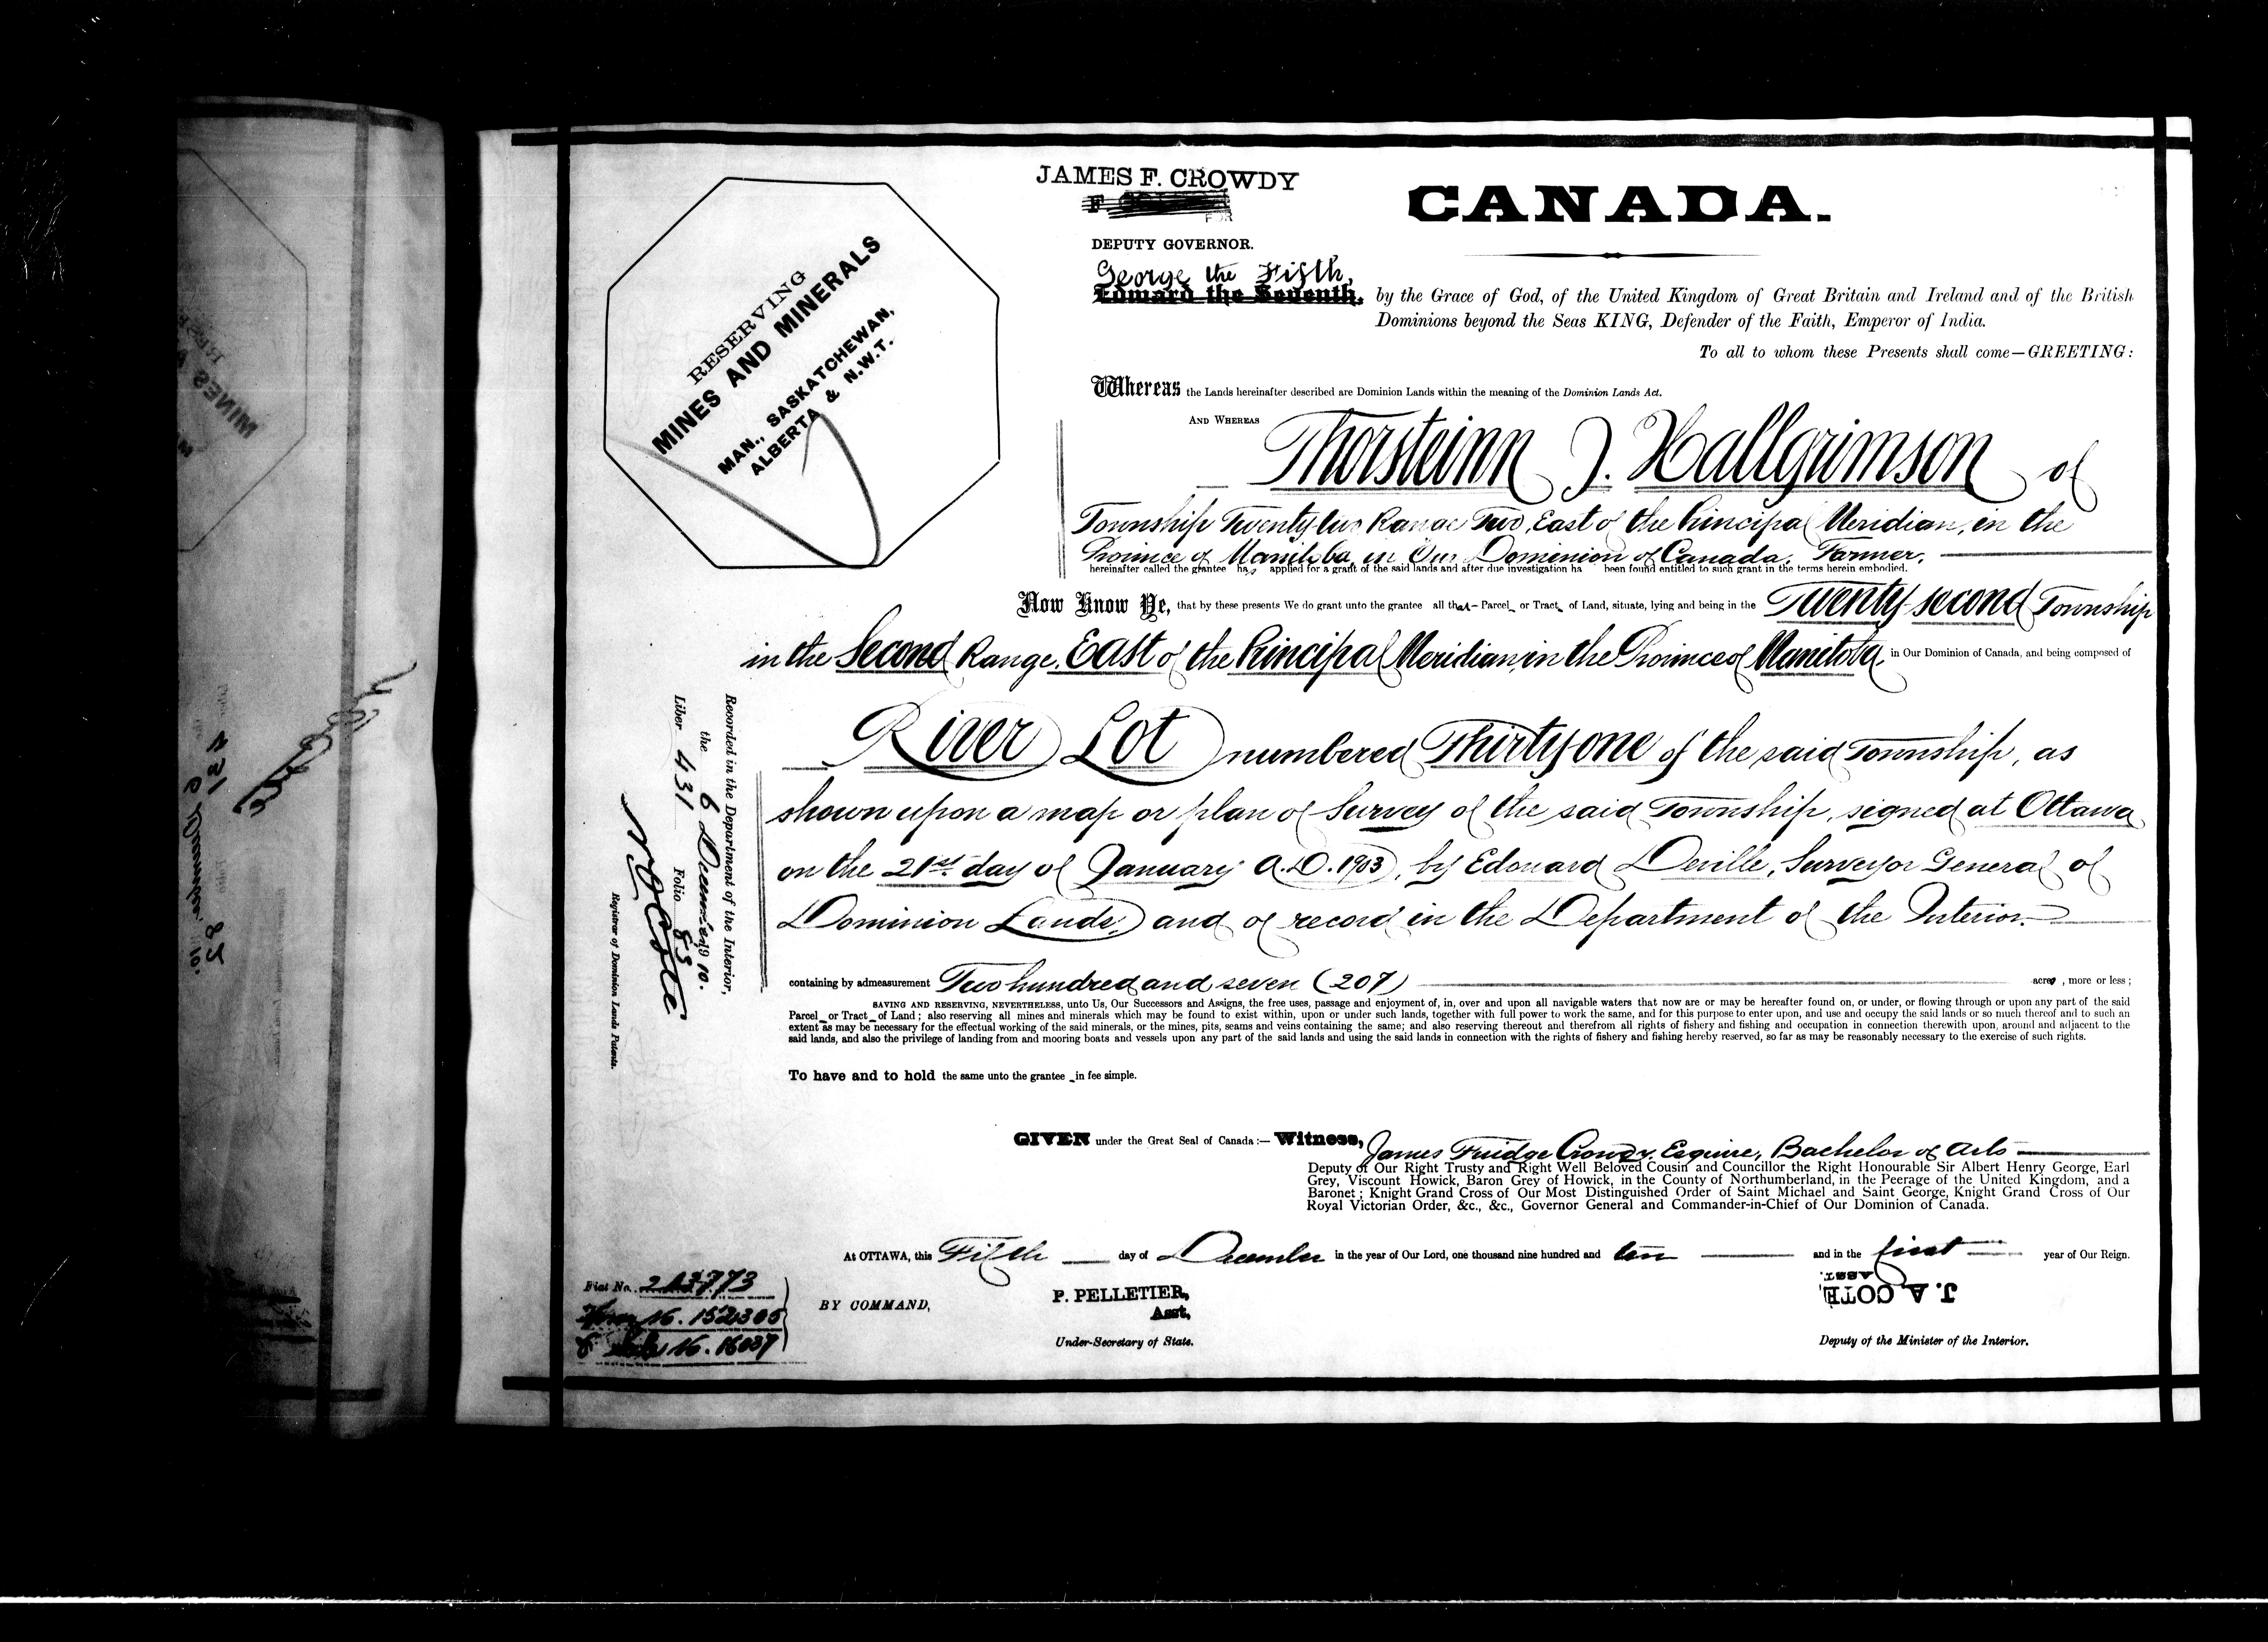 JAMES F. CROWDY
FOR
DEPUTY GOVERNOR.
CANADA.
George the Fifth,
Edward the Seventh, by the Grace of God, of the United Kingdom of Great Britain and Ireland and of the British
Dominions beyond the Seas KING, Defender of the Faith, Emperor of India.
To all to whom these Presents shall come—GREETING:
RESERVING
MINES AND MINERALS
MAN., SASKATCHEWAN,
ALBERTA & N.W.T.
Whereas the Lands hereinafter described are Dominion Lands within the meaning of the Dominion Lands Act.
AND WHEREAS Thorsteinn J. Hallgrimson of
Township Twenty two Range Two, East of the Principal Meridian, in the
Province of Manitoba, in Our Dominion of Canada, Farmer,
hereinafter called the grantee has applied for a grant of the said lands and after due investigation ha been found entitled to such grant in the terms herein embodied.
Now Know Ye, that by these presents We do grant unto the grantee all that Parcel or Tract of Land, situate, lying and being in the Twenty-second Township
in the Second Range, East of the Principal Meridian, in the Province of Manitoba, in Our Dominion of Canada, and being composed of
River Lot numbered Thirty one of the said Township, as
shown upon a map or plan of Survey of the said Township, signed at Ottawa
on the 21st. day of January A.D. 1903, by Edouard Deville, Surveyor General of
Dominion Lands, and of record in the Department of the Interior.
containing by admeasurement Two hundred and seven (207) acres, more or less;
SAVING AND RESERVING, NEVERTHELESS, unto Us, Our Successors and Assigns, the free uses, passage and enjoyment of, in, over and upon all navigable waters that now are or may be hereafter found on, or under, or flowing through or upon any part of the said
Parcel or Tract of Land; also reserving all mines and minerals which may be found to exist within, upon or under such lands, together with full power to work the same, and for this purpose to enter upon, and use and occupy the said lands or so much thereof and to such an
extent as may be necessary for the effectual working of the said minerals, or the mines, pits, seams and veins containing the same; and also reserving thereout and therefrom all rights of fishery and fishing and occupation in connection therewith upon, around and adjacent to the
said lands, and also the privilege of landing from and mooring boats and vessels upon any part of the said lands and using the said lands in connection with the rights of fishery and fishing hereby reserved, so far as may be reasonably necessary to the exercise of such rights.
To have and to hold the same unto the grantee in fee simple.
Recorded in the Department of the Interior,
the 6 December 1910.
Liber 431 Folio 83
N O Coté
Registrar of Dominion Lands Patents.
GIVEN under the Great Seal of Canada:— Witness, James Fuidge Crowdy, Esquire, Bachelor of Arts
Deputy of Our Right Trusty and Right Well Beloved Cousin and Councillor the Right Honourable Sir Albert Henry George, Earl
Grey, Viscount Howick, Baron Grey of Howick, in the County of Northumberland, in the Peerage of the United Kingdom, and a
Baronet; Knight Grand Cross of Our Most Distinguished Order of Saint Michael and Saint George, Knight Grand Cross of Our
Royal Victorian Order, &c., &c., Governor General and Commander-in-Chief of Our Dominion of Canada.
At OTTAWA, this Fifth day of December in the year of Our Lord, one thousand nine hundred and ten and in the first year of Our Reign.
Fiat No. 213773
16. 1521306
16. 16037
BY COMMAND,
P. PELLETIER,
Asst.
Under-Secretary of State.
J. A. COTÉ,
ASST.
Deputy of the Minister of the Interior.